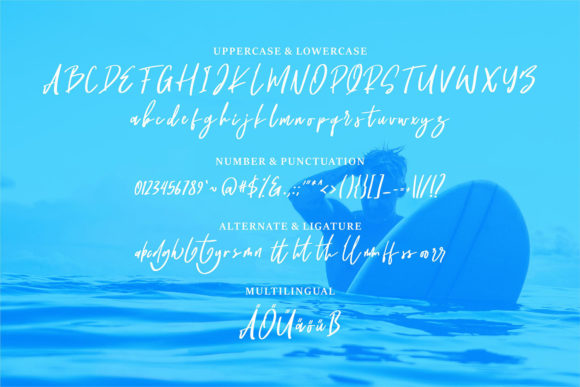 UPPERCASE & LOWERCASE
ABCDEFGHIJKLMNOPQRSTUVWXYZ
abcdefghijklmnopqrstuvwxyz
NUMBER & PUNCTUATION
0123456789'~@#$%&.,:;'"*^<>(){}[]_-=+\//!?
ALTERNATE & LIGATURE
tt ht th ll mm ff ss oo rr
MULTILINGUAL